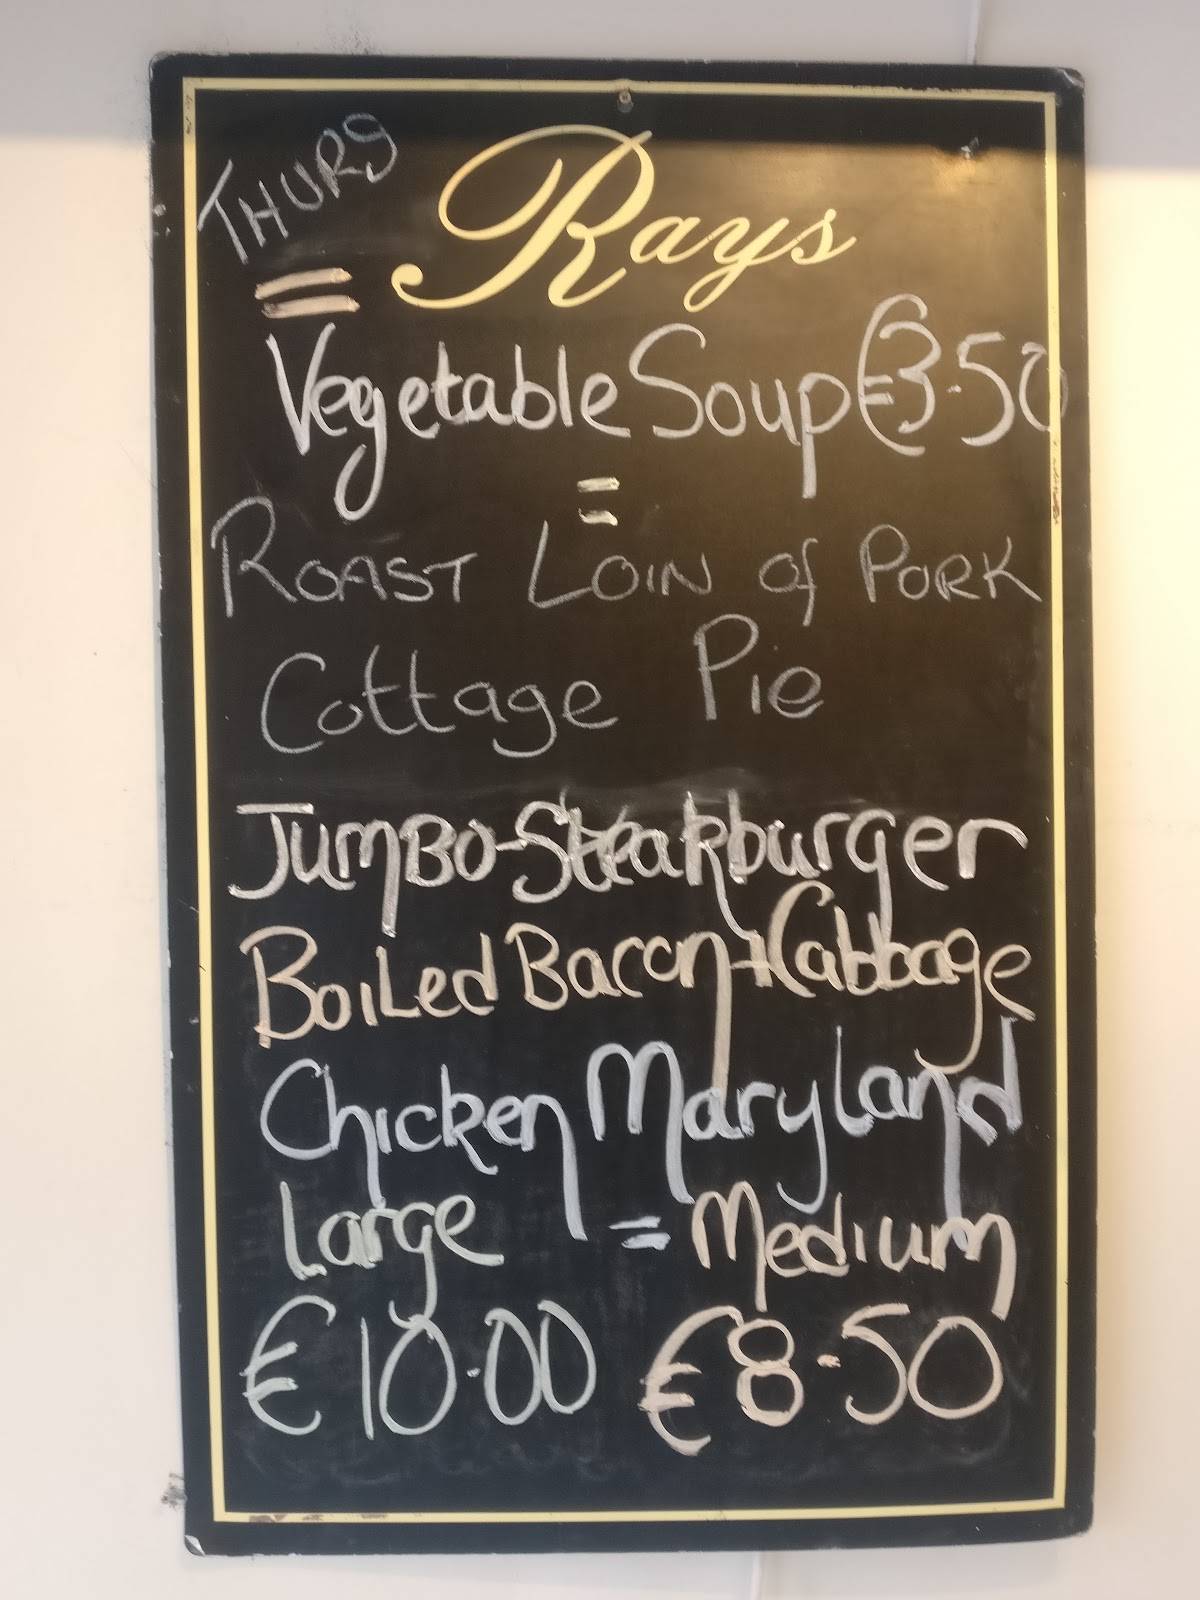 THURS
Rays
Vegetable Soup €3.50
=
ROAST LOIN of PORK
Cottage Pie
JUMBO-Steakburger
BoiLed Bacon + Cabbage
Chicken Maryland
Large = Medium
€10.00 €8.50